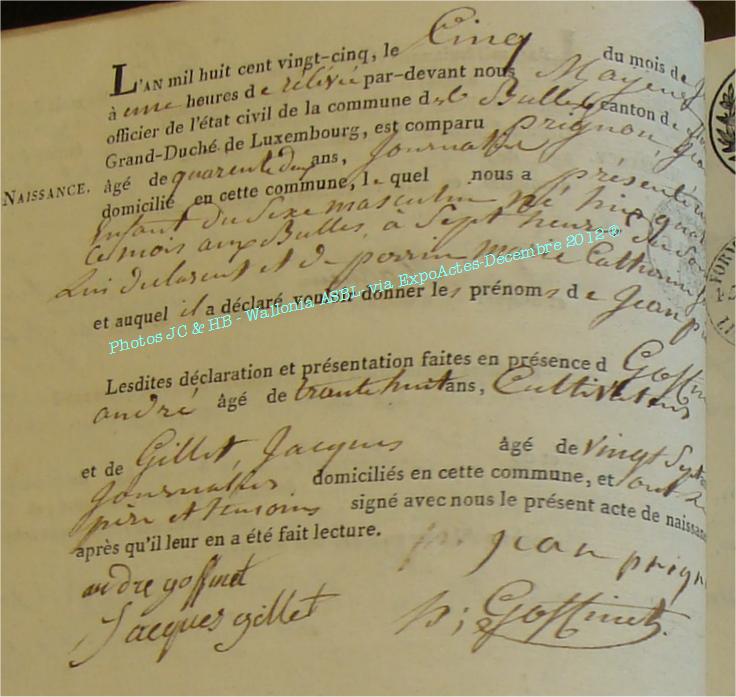 L'AN mil huit cent vingt-cinq, le Cinq du mois de
à une heures de rélévée par-devant nous Mayeur
officier de l'état civil de la commune des Bulles canton de
Grand-Duché de Luxembourg, est comparu prignon,
NAISSANCE. âgé de quarente deux ans, Journalier
domicilié en cette commune, le quel nous a présenté un
Enfant du Sexe masculin né hier
ce mois aux Bulles, à Sept heures du
Lui declarent et de perrin Marie Catherine
et auquel il a déclaré vouloir donner les prénoms de Jean
Photos JC & HB - Wallonia ASBL via ExpoActes-Decembre 2012 ®
Lesdites déclaration et présentation faites en présence d Goffin
andré âgé de trante huit ans, Cultivateur
et de Gillet, Jacques âgé de vingt Sept
Journalier domiciliés en cette commune, et ont
père et temoins signé avec nous le présent acte de naissan
après qu'il leur en a été fait lecture.
jean prign
andre goffinet
Jacques gillet
Goffinet